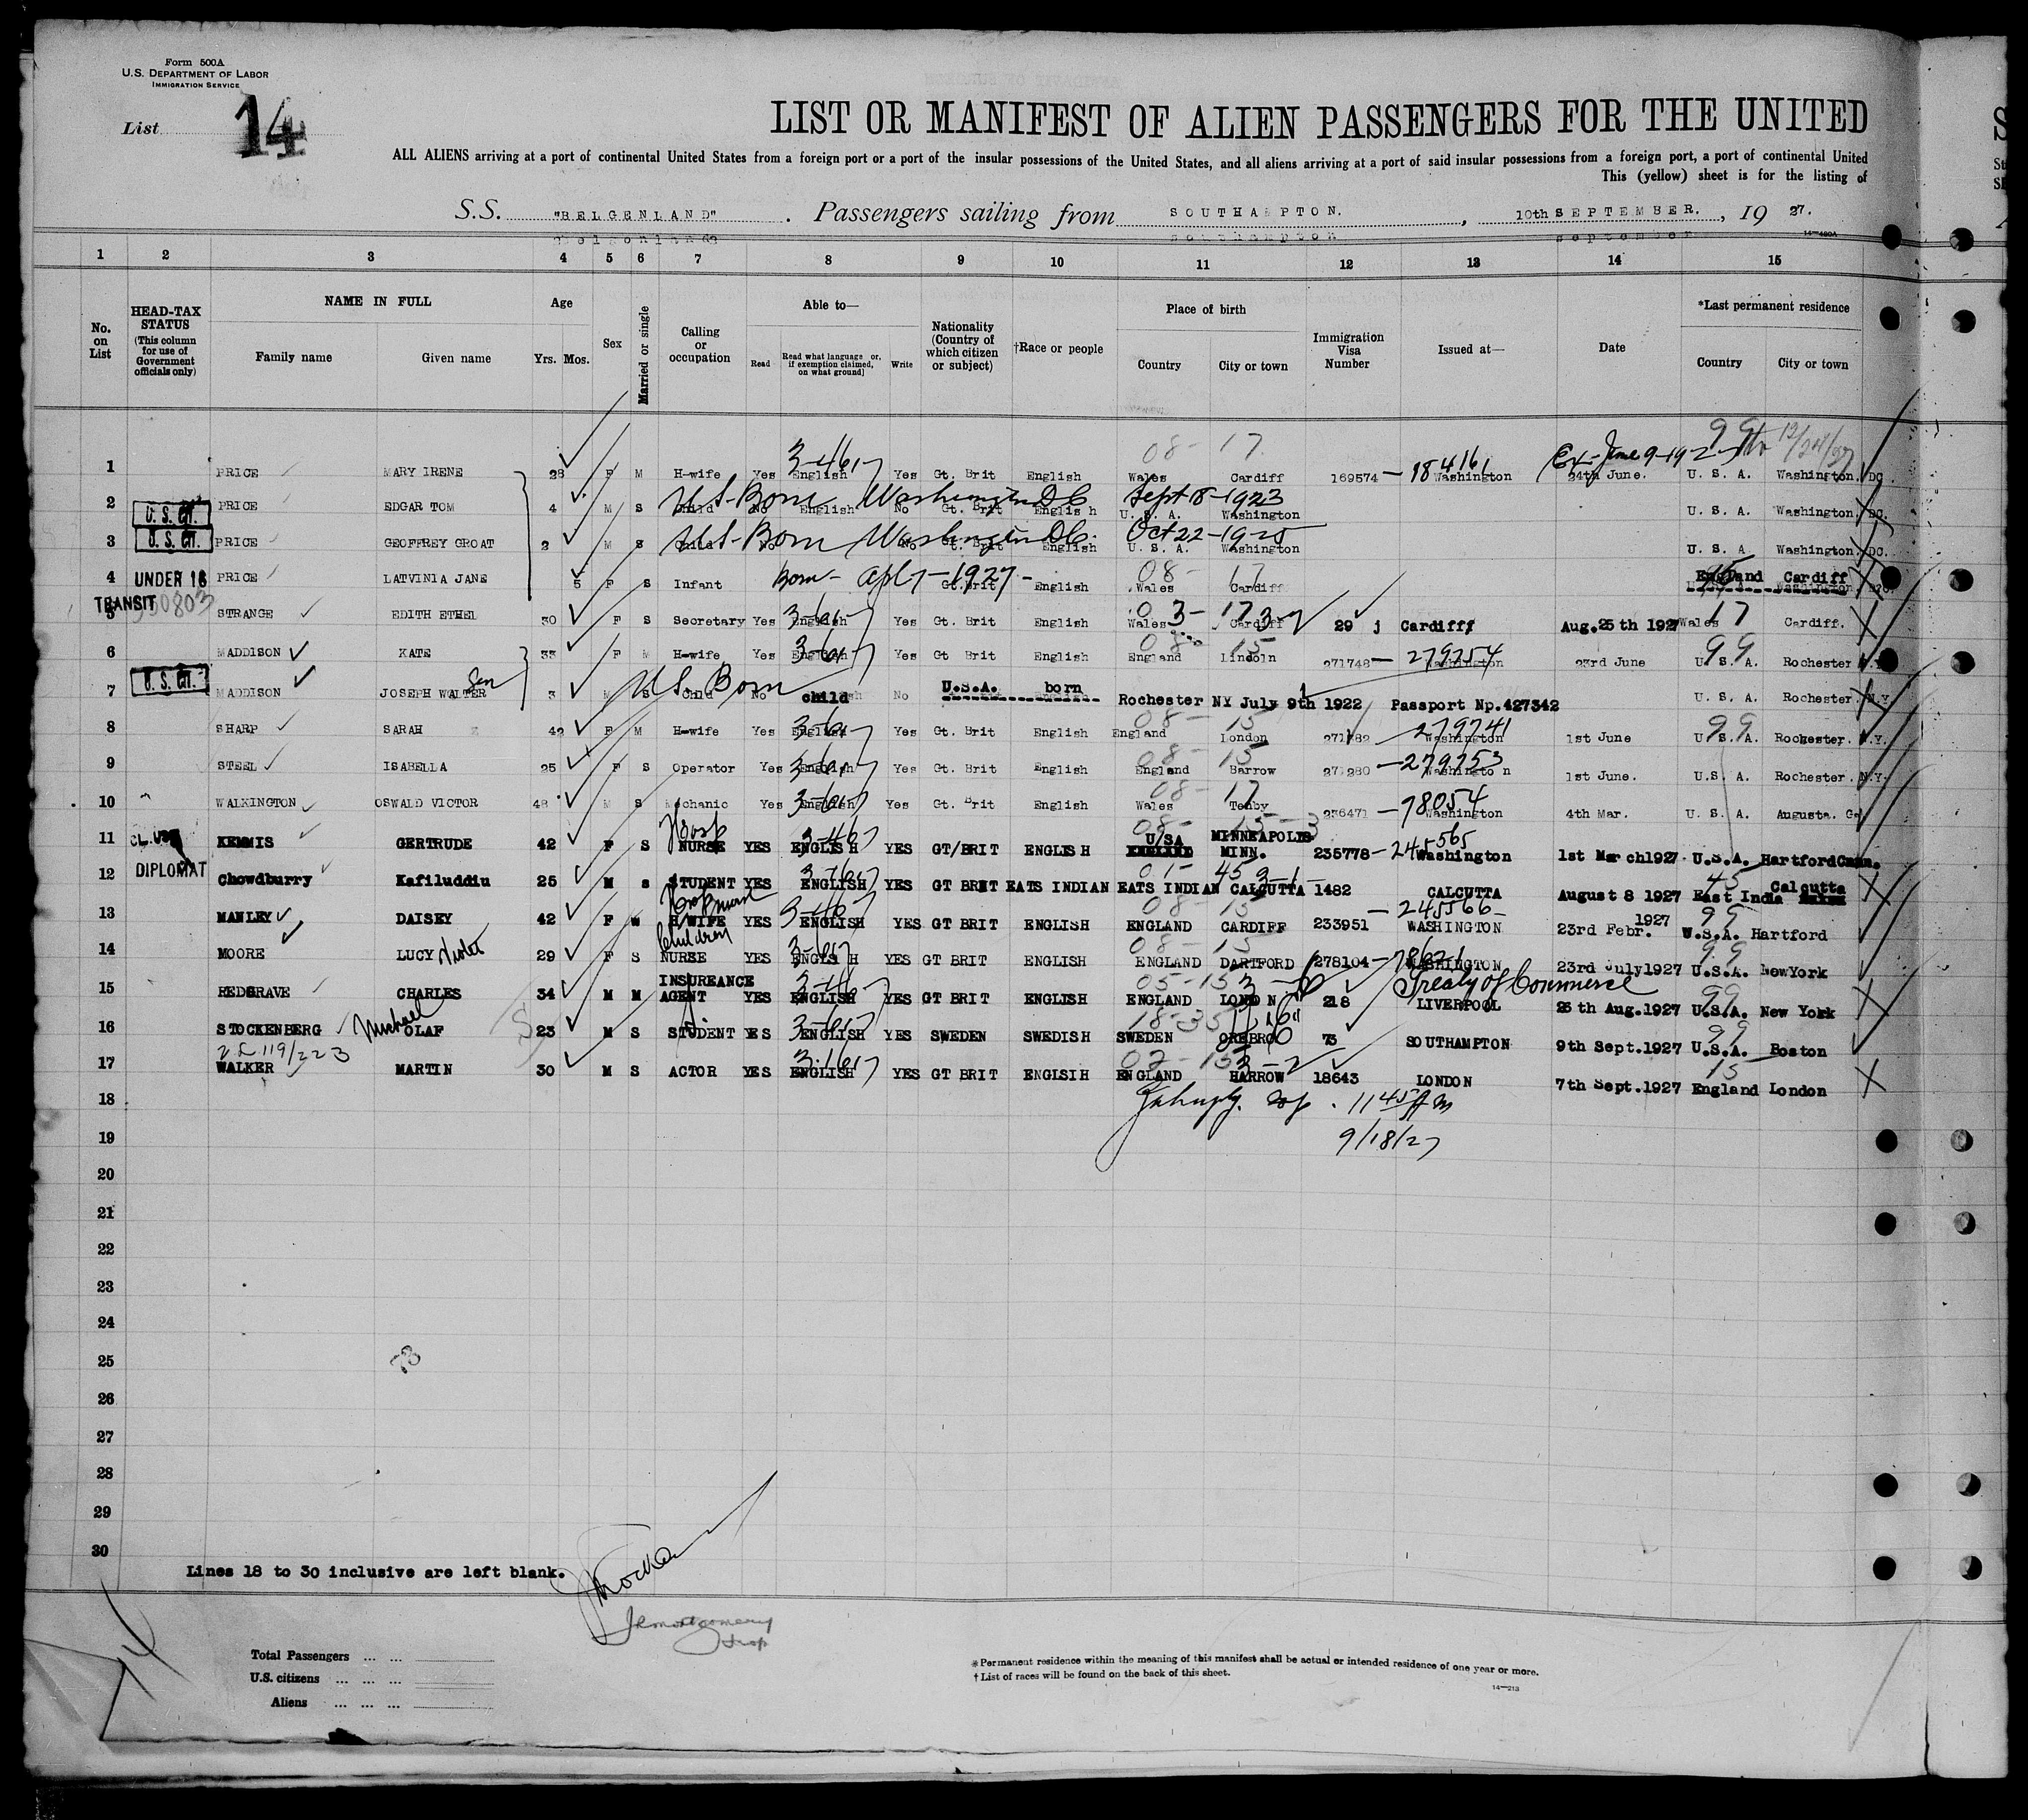 Form 500A
U.S. DEPARTMENT OF LABOR
IMMIGRATION SERVICE
List 14
LIST OR MANIFEST OF ALIEN PASSENGERS FOR THE UNITED
ALL ALIENS arriving at a port of continental United States from a foreign port or a port of the insular possessions of the United States, and all aliens arriving at a port of said insular possessions from a foreign port, a port of continental United
This (yellow) sheet is for the listing of
S.S. "BELGENLAND". Passengers sailing from SOUTHAMPTON. , 10th SEPTEMBER. , 19 27.
1 2 3 4 5 6 7 8 9 10 11 12 13 14 15
No. on List
HEAD-TAX STATUS (This column for use of Government officials only)
NAME IN FULL
Family name Given name
Age
Yrs. Mos.
Sex
Married or single
Calling or occupation
Able to—
Read Read what language or, if exemption claimed, on what ground] Write
Nationality (Country of which citizen or subject)
†Race or people
Place of birth
Country City or town
Immigration Visa Number
Issued at—
Date
*Last permanent residence
Country City or town
1 PRICE MARY IRENE 28 F M H-wife Yes English Yes Gt. Brit English Wales Cardiff 169574 — 184161 Washington 24th June. U. S. A. Washington. DC.
2 U. S. CIT. PRICE EDGAR TOM 4 M S Child No English No Gt. Brit English U. S. A. Washington U. S. A. Washington. DC.
U.S. Born Washington DC Sept 18-1923
3 U. S. CIT. PRICE GEOFFREY GROAT 2 M S Child No No Gt. Brit English U. S. A. Washington U. S. A Washington. DC.
U.S. Born Washington DC. Oct 22-1925
4 UNDER 16 PRICE LATVINIA JANE 5 F S Infant Born - Apl 7-1927- Gt. Brit English Wales Cardiff England Cardiff
5 TRANSIT STRANGE EDITH ETHEL 30 F S Secretary Yes English Yes Gt. Brit English Wales Cardiff 29 j Cardifff Aug. 25th 1927 Wales Cardiff.
6 MADDISON KATE 33 F M H-wife Yes English Yes Gt Brit English England Lincoln 271748 — 279254 Washington 23rd June U. S. A. Rochester N.Y.
7 U. S. CIT. MADDISON JOSEPH WALTER 3 M S Child No child No U.S.A. born Rochester NY July 9th 1922 Passport Np.427342 U. S. A. Rochester. N.Y
U.S. Born
8 SHARP SARAH 42 F M H-wife Yes English Yes Gt. Brit English England London 271782 279741 Washington 1st June U. S. A. Rochester. N.Y.
9 STEEL ISABELLA 25 F S Operator Yes English Yes Gt. Brit English England Barrow 271280 — 279753 Washington 1st June. U.S. A. Rochester. N.Y.
10 WALKINGTON OSWALD VICTOR 48 M S Mechanic Yes English Yes Gt. Brit English Wales Tenby 236471 — 78054 Washington 4th Mar. U. S. A. Augusta. Ga
11 KEMMIS GERTRUDE 42 F S Hosp NURSE YES ENGLISH YES GT/BRIT ENGLISH U/SA ENGLAND MINNEAPOLIS MINN. 235778 — 245565 Washington 1st March1927 U.S.A. Hartford Conn.
12 DIPLOMAT Chowdburry Kafiluddiu 25 M S STUDENT YES ENGLISH YES GT BRIT EATS INDIAN EATS INDIAN CALCUTTA 1482 CALCUTTA August 8 1927 East India Calcutta
13 MANLEY DAISEY 42 F W H WIFE YES ENGLISH YES GT BRIT ENGLISH ENGLAND CARDIFF 233951 — 245566 — WASHINGTON 23rd Febr. 1927 U.S.A. Hartford
14 MOORE LUCY Violet 29 F S Children NURSE YES ENGLISH YES GT BRIT ENGLISH ENGLAND DARTFORD 278104 — WASHINGTON 23rd July1927 U.S.A. NewYork
15 REDGRAVE CHARLES 34 M M INSUREANCE AGENT YES ENGLISH YES GT BRIT ENGLISH ENGLAND LONDON 218 Treaty of Commerce LIVERPOOL 26th Aug.1927 U.S.A. New York
16 STOCKENBERG Michael OLAF 23 M S STUDENT YES ENGLISH YES SWEDEN SWEDISH SWEDEN OREBRO 73 SOUTHAMPTON 9th Sept.1927 U.S.A. Boston
17 WALKER MARTIN 30 M S ACTOR YES ENGLISH YES GT BRIT ENGLSIH ENGLAND HARROW 18643 LONDON 7th Sept.1927 England London
18 11 45 AM
19 9/18/27
20
21
22
23
24
25
26
27
28
29
30
Lines 18 to 30 inclusive are left blank.
JR Montgomery
Insp
Total Passengers ... ...
U.S. citizens ... ... ...
Aliens ... ... ...
*Permanent residence within the meaning of this manifest shall be actual or intended residence of one year or more.
†List of races will be found on the back of this sheet.
14—213